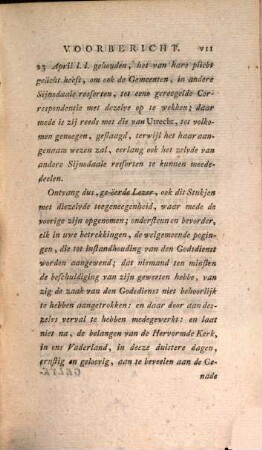 VOORBERICHT. VII
23 April l. l. gehouden, het van hare plicht
geächt heeft, om ook de Gemeenten, in andere
Sijnodaale resforten, tot eene geregelde Cor-
respondentie met dezelve op te wekken; daar
mede is zij reeds met die van Utrecht, tot volko-
men genoegen, geslaagd, terwijl het haar aan-
genaam wezen zal, eerlang ook het zelvde van
andere Sijnodaale resforten te kunnen meede-
deelen.
Ontvang dus, geëerde Lezer, ook dit Stukjen
met diezelvde toegeneegenheid, waar mede de
voorige zijn opgenomen; ondersteun en bevorder,
elk in uwe betrekkingen, de welgemoende pogin-
gen, die tot instandhouding van den Godsdienst
worden aangewend; dat niemand ten minsten
de beschuldiging van zijn geweten hebbe, van
zig de zaak van den Godsdienst niet behoorlijk
te hebben aangetrokken: en daar door aan des-
zelvs verval te hebben medegewerkt: en laat
niet na, de belangen van de Hervormde Kerk,
in ons Vaderland, in deeze duistere dagen,
ernstig en geloovig, aan te beveelen aan de Ge-
nade